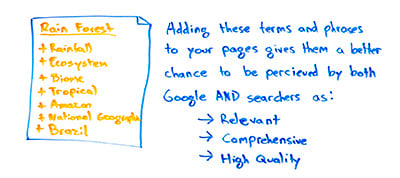 Rain Forest
+ Rainfall
+ Ecosystem
+ Biome
+ Tropical
+ Amazon
+ National Geographic
+ Brazil
Adding these terms and phrases
to your pages gives them a better
chance to be percieved by both
Google AND searchers as:
→ Relevant
→ Comprehensive
→ High Quality